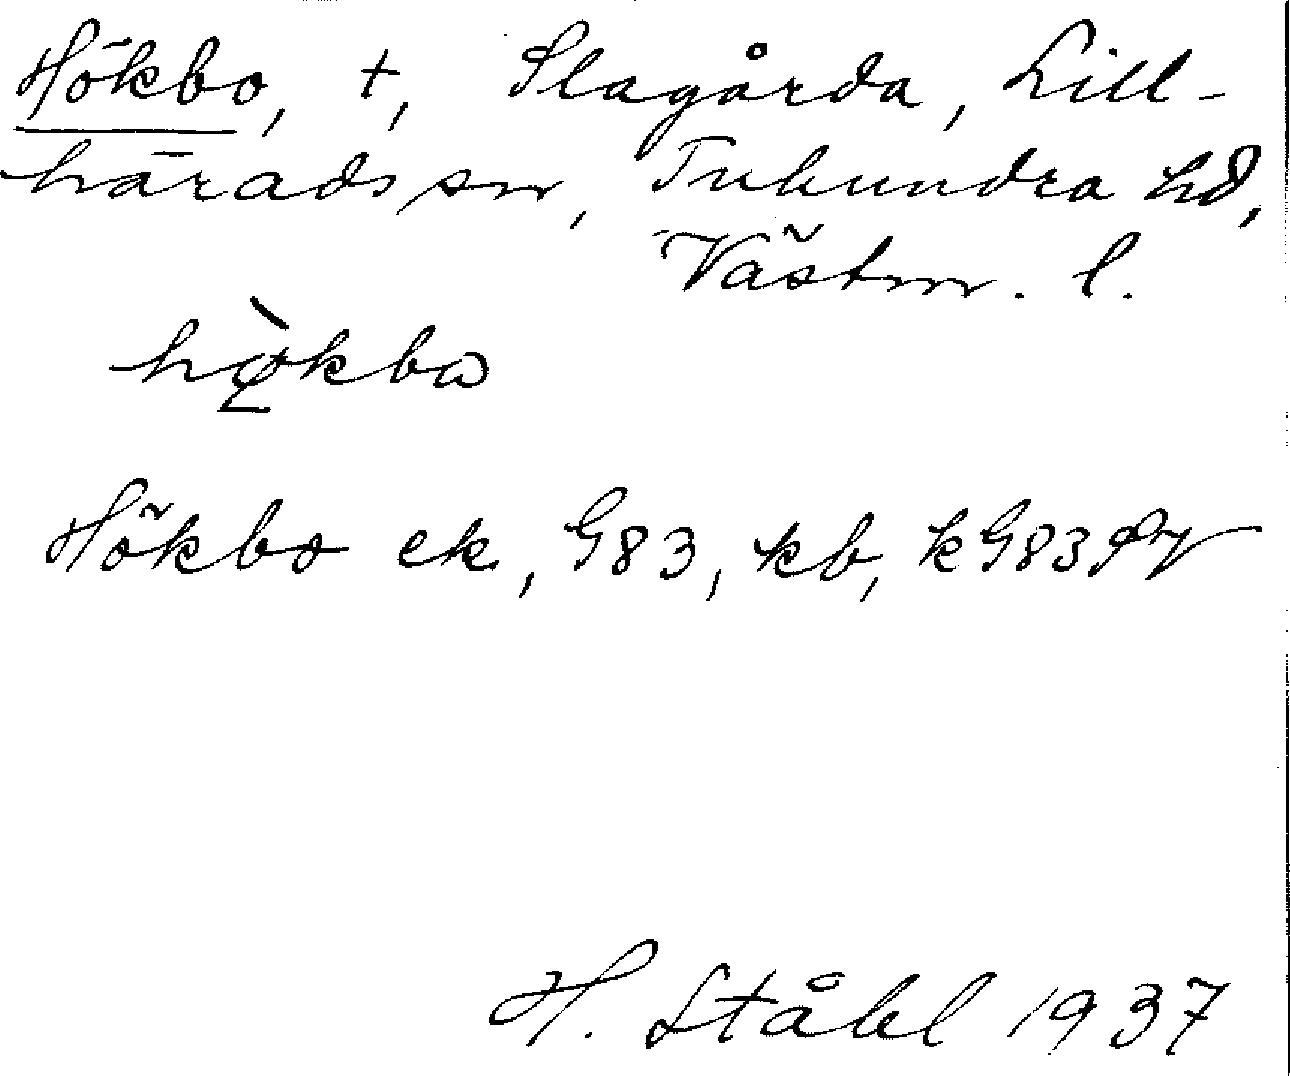 Hökbo, +, Slagårda, Lill-
härads sn, Tuhundra hd,
Västm. l.
hø̀kbω
Hökbo ek, G83, kb, kG83
H. Ståhl 1937